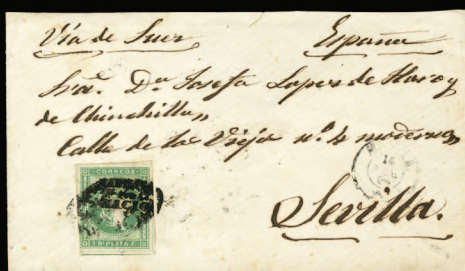 Via de Suez España
Sra. Da. Josefa Lopez de Haro y
de Chinchilla,,
Calle de las Viejo no. 4 moderno,,
Sevilla.
CORREOS